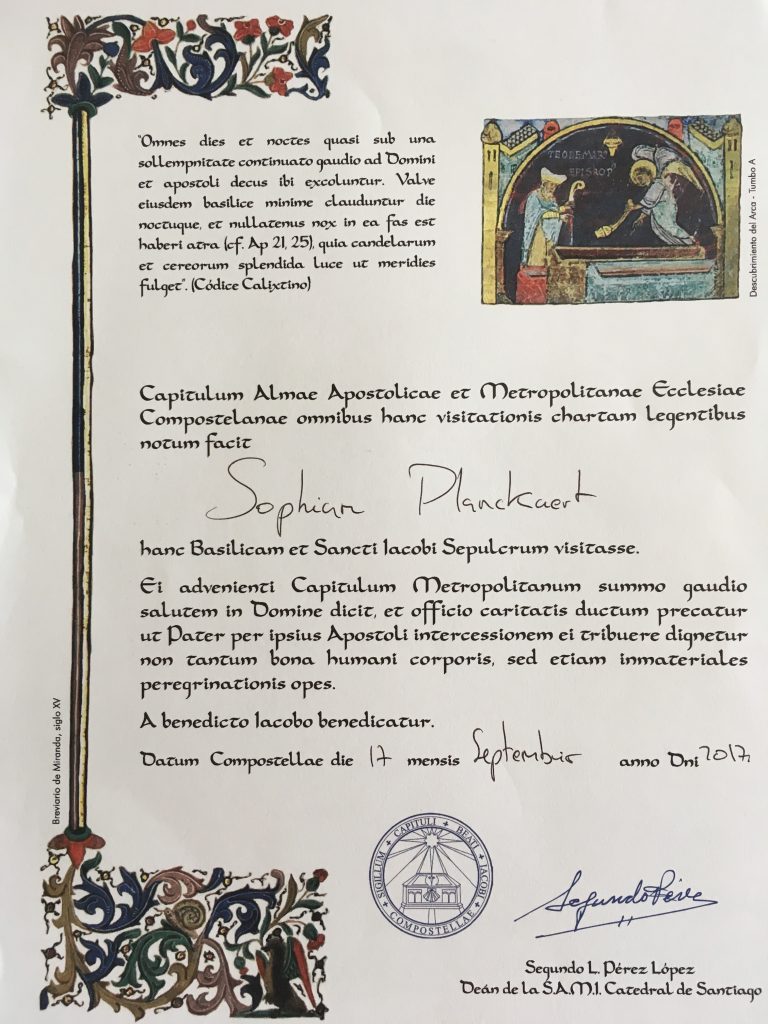 "Omnes dies et noctes quasi sub una
sollempnitate continuato gaudio ad Domini
et apostoli decus ibi excoluntur. Valve
eiusdem basilice minime clauduntur die
noctuque, et nullatenus nox in ea fas est
haberi atra (cf. Ap 21, 25), quia candelarum
et cereorum splendida luce ut meridies
fulget". (Códice Calixtino)
TEODEMIR
EPISCOP
Descubrimiento del Arca - Tumbo A
Capitulum Almae Apostolicae et Metropolitanae Ecclesiae
Compostelanae omnibus hanc visitationis chartam legentibus
notum facit
Sophian Planckaert
hanc Basilicam et Sancti Iacobi Sepulcrum visitasse.
Ei advenienti Capitulum Metropolitanum summo gaudio
salutem in Domine dicit, et officio caritatis ductum precatur
ut Pater per ipsius Apostoli intercessionem ei tribuere dignetur
non tantum bona humani corporis, sed etiam inmateriales
peregrinationis opes.
A benedicto Iacobo benedicatur.
Datum Compostellae die 17 mensis Septembris anno Dni 2017
Breviario de Miranda, siglo XV
SIGILLUM + CAPITULI + BEATI + JACOBI + COMPOSTELLAE +
Segundo Pérez
Segundo L. Pérez López
Deán de la S.A.M.I. Catedral de Santiago